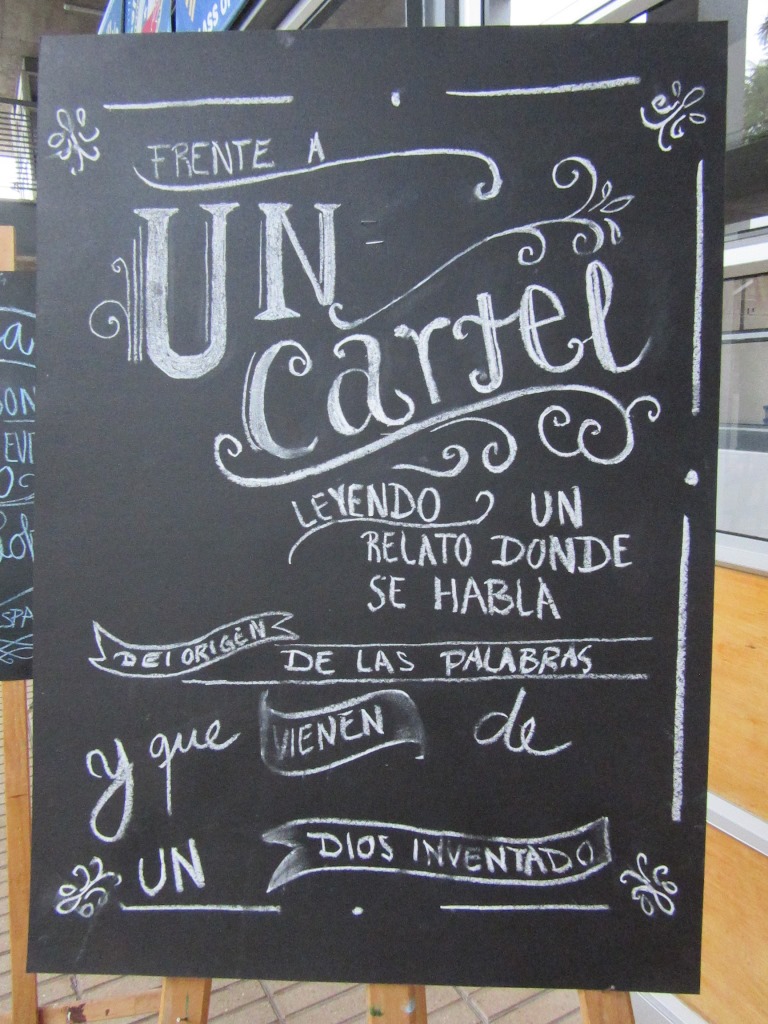 ASS OF
FRENTE A
UN
cartel
LEYENDO UN
RELATO DONDE
SE HABLA
DEl ORIGEN DE LAS PALABRAS
y que VIENEN de
UN DIOS INVENTADO